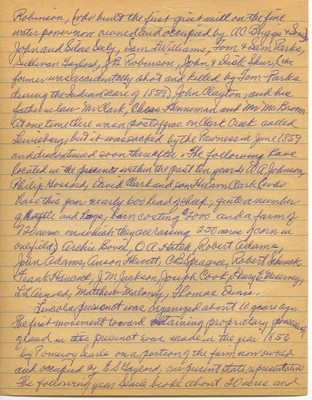 Robinson, (who built the first grist mill on the fine
water power now owned and occupied by A C Briggs & Sons)
John and Silas Seely, Sam L Williams, Tom & Sam Parks,
Sullivan Gaylord, J B Robinson, John & Dick Shur, (the
former was accidently shot and killed by Tom Parks
during the Indian scare of 1859) John Clayton, and his
father in law Mr Clark, Chas Henneman and My Mr Brown
At one time there was a post office on Creek called
Lewisburg, but it was sacked by the Pawnees in June 1859
and discontinued soon thereafter. The following have
located in the precinct within the past ten years W A Johnson,
Philip Howard, David Clark and son Hiram Clark (who
have this year nearly 600 head of sheep, quite a number
of cattle and hogs, barn costing $2000 and a farm of
720 acres on which they are raising 220 acres of corn in
one field) Archie Bovee, O A Hatch, Robert Adams,
John Adams, Anson Hewett, C D Sprague, Robert Schenck
Frank Hancock, J W Jackson, Joseph Cook, Henry E Murney,
L L Arnold, Matthew Maloney, Thomas Dinis.
Lincoln precinct was organized about 10 years ago.
The first movement toward obtaining proprietary
of land in this precinct was made in the year 1856
by Pomeroy Searle on a portion of the farm now owned
and occupied by E S Gaylord, our present state representative
The following year Searle broke about 20 acres and